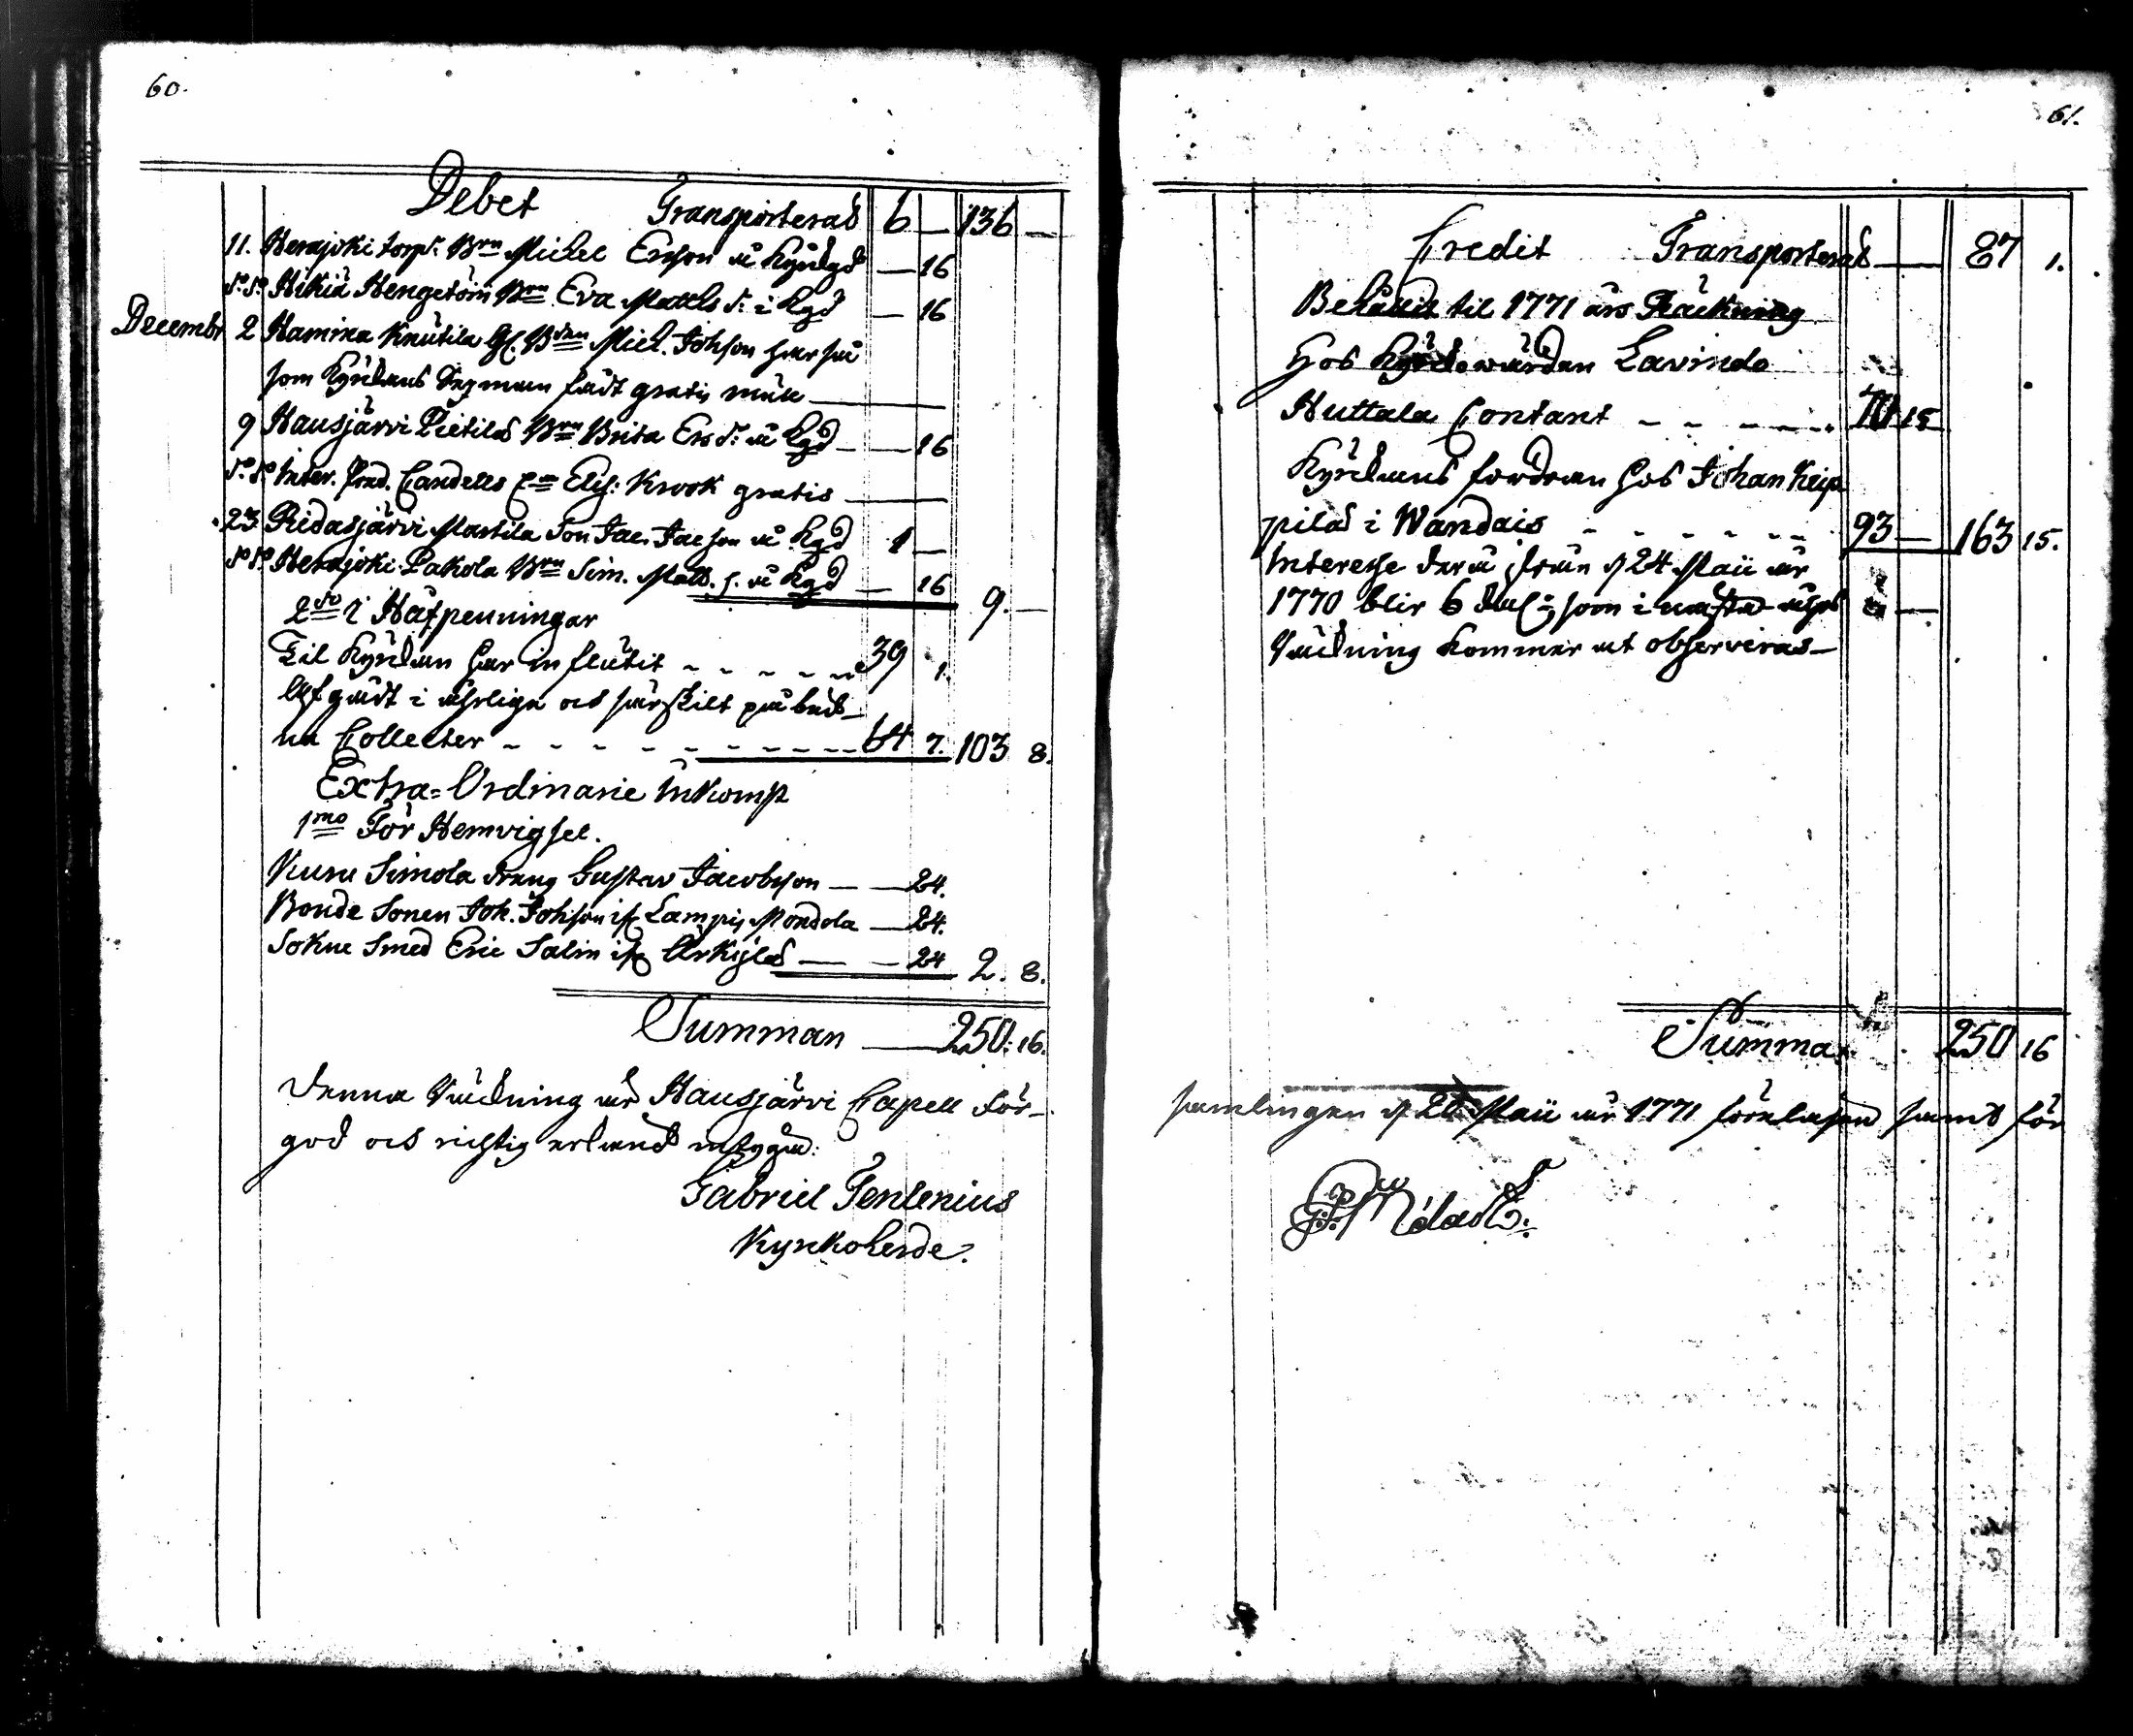 60.
Debet Transporterad 6 — 136 —
11. Herajoki torp. Brn Michel Ersson å Kyrkgd — 16
do do Hikiä Hengetöin Brn Eva Matts d. i Kgd — 16
Decembr 2 Hamina Knutila Gl. Bden Mich. Johsson har så
som Kyrckans Sexman fådt gratis mull —
9 Hausjärvi Pietilas Brn Brita Ers d. å Kgd — 16
do do Inter. Candells Elis: Krook gratis —
23 Ridasjärvi Martila Son Jac. Jacsson å Kgd 1 —
do do Herajoki Pakola Brn Sim. Matts. s. å Kgd — 16 9. —
2do i Häfpenningar
Til Kyrckan har influtit - - - - - 39 1.
Uppgådt i åhrliga och särskilt påbud-
na Collecter - - - - - - - - 64 7. 103 8.
Extra-Ordinarie Inkomst
1mo För Hemvigsel.
Kuru Simola dreng Gustav Jacobsson — — 24.
Bonde Sonen Joh. Johsson ifr. Lampis Mondola — 24.
Sokne Smed Eric Salin ifr. Urkylä — — 24 2. 8.
Summan — 250. 16.
Denna Räckning är Hausjärvi Capell För-
god och richtig erkänd intygar:
Gabriel Fenlenius
Kyrckoherde.
61.
Credit Transporterad — 87 1.
Behållit til 1771 års Räckning
Hos Kyrckowärden Lavinde
Huttala Contant - - - - - 70 15
Kyrckans fordran hos Johan Keip
pilas i Wandais - - - - - - 93 — 163 15.
Interesse derå ifrån d 24 Maii år
1770 blir 6 dal. som i nästa åhrs —
Räckning kommer at observeras —
Summa 250 16
samlingen d 20 Maii år 1771 föreläsen samt för